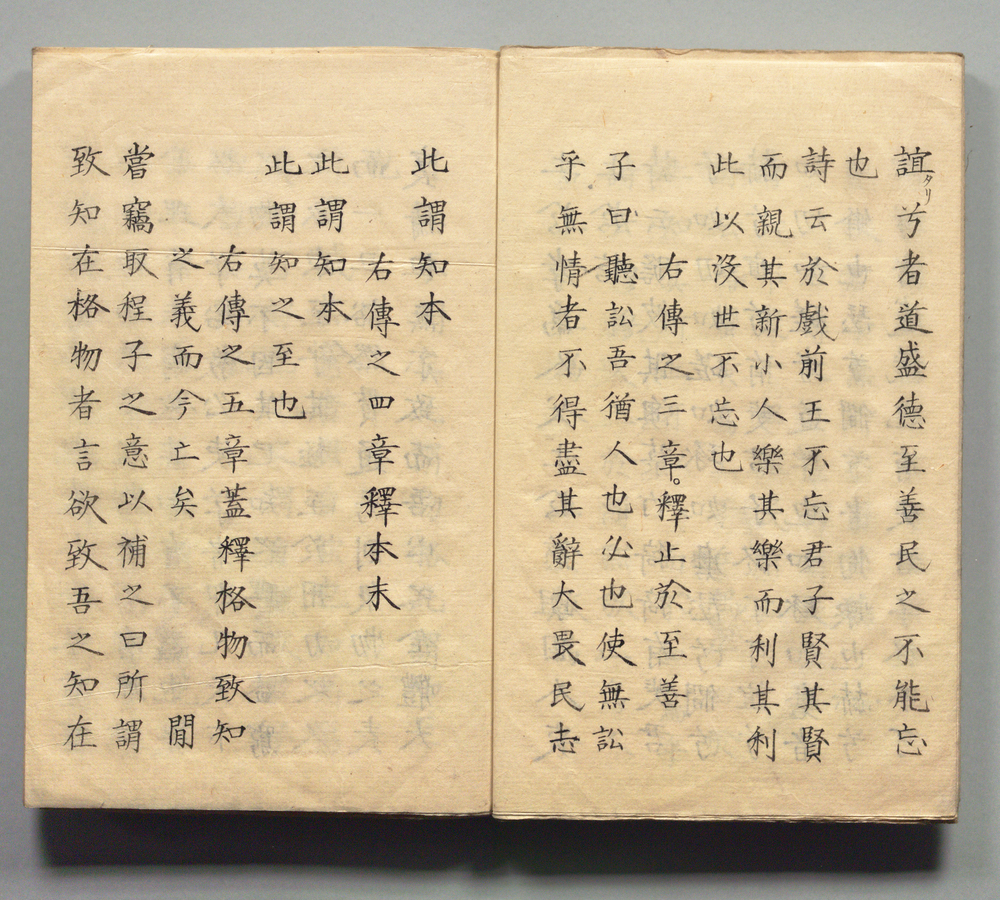 諠タリ兮者道盛德至善民之不能忘
也
詩云於戲前王不忘君子賢其賢
而親其新小人樂其樂而利其利
此以沒世不忘也
右傳之三章。釋止於至善
子曰聽訟吾猶人也必也使無訟
乎無情者不得盡其辭大畏民志
此謂知本
右傳之四章釋本末
此謂知本
此謂知之至也
右傳之五章蓋釋格物致知
之義而今亡矣 閒
嘗竊取程子之意以補之曰所謂
致知在格物者言欲致吾之知在